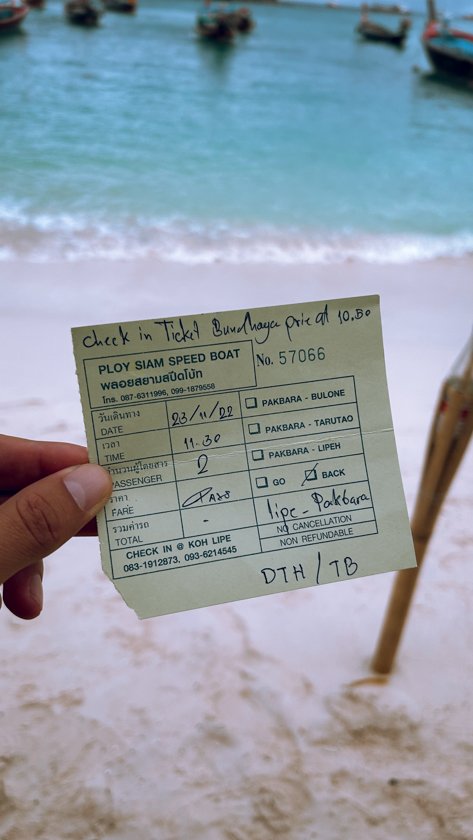 check in Ticket Bundhaya prie at 10.30
PLOY SIAM SPEED BOAT
พลอยสยามสปีดโบ๊ท
โทร. 087-6311996, 099-1879558
No. 57066
วันเดินทาง
DATE 23/11/22
เวลา
TIME 11.30
จำนวนผู้โดยสาร
PASSENGER 2
ราคา
FARE
รวมค่ารถ
TOTAL -
CHECK IN @ KOH LIPE
083-1912873, 093-6214545
PAKBARA - BULONE
PAKBARA - TARUTAO
PAKBARA - LIPEH
GO BACK
lipe - Pakbara
NO CANCELLATION
NON REFUNDABLE
DTH / TB